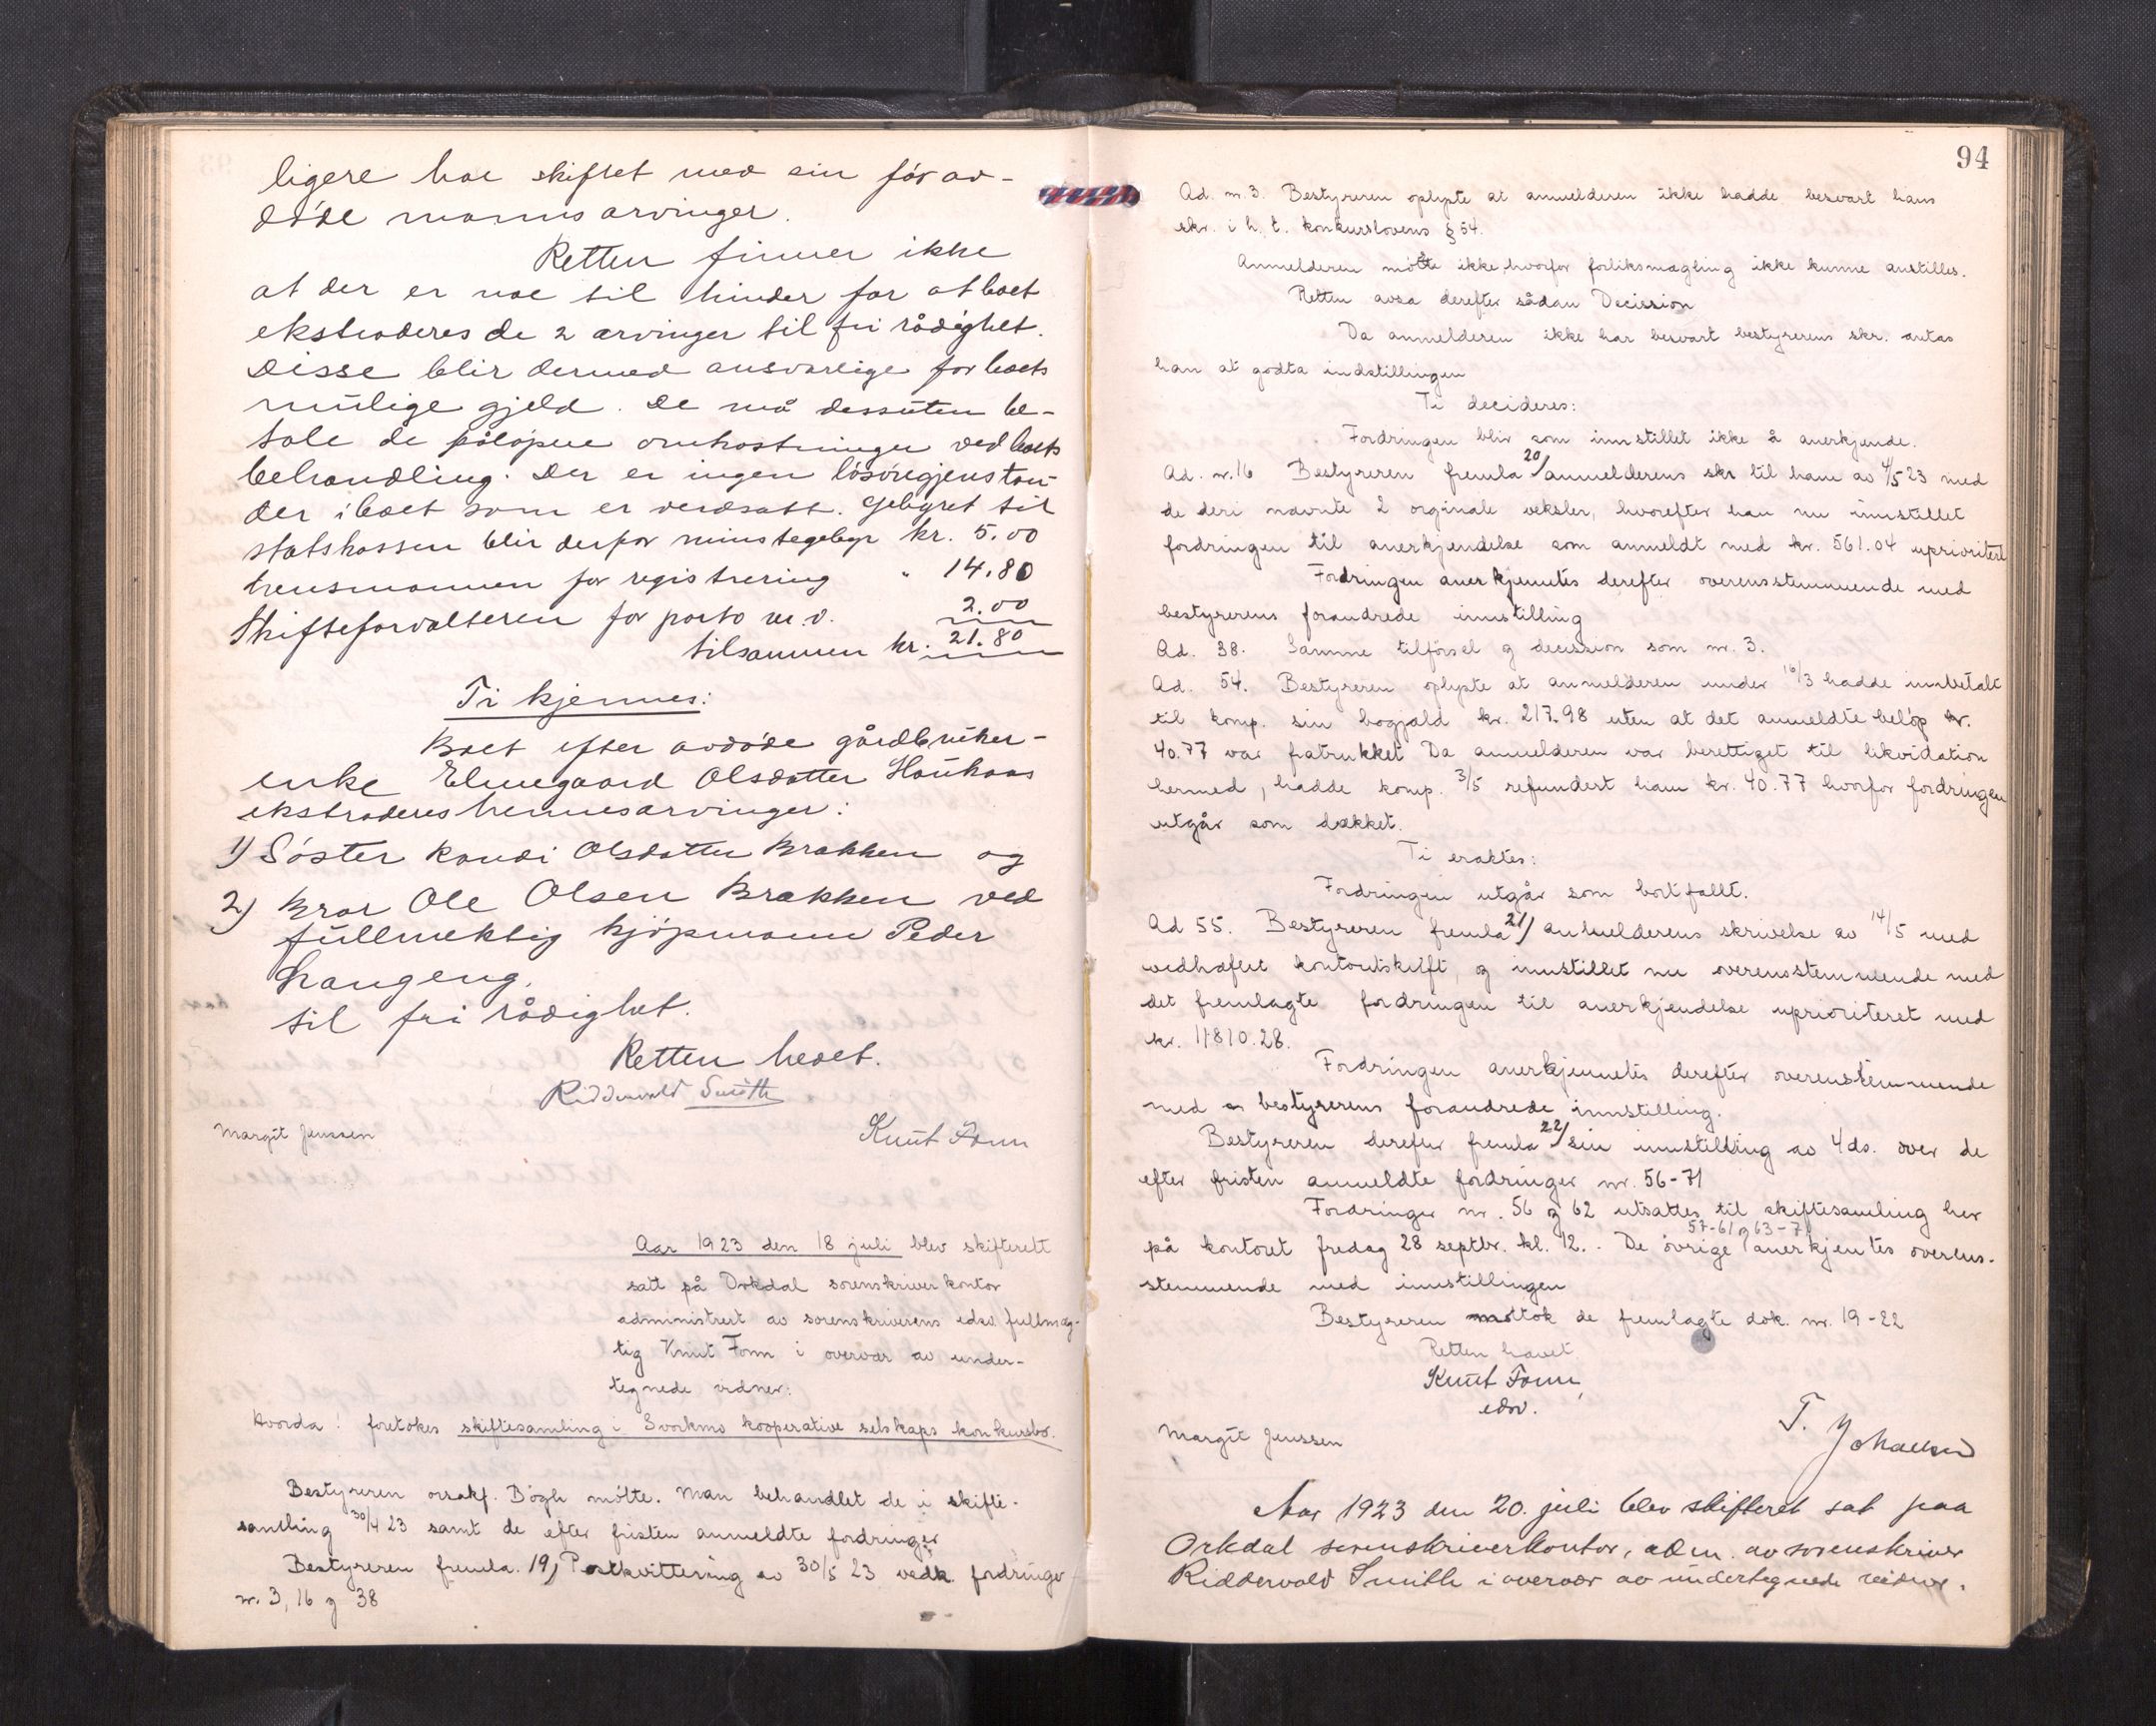 ligere har skiftet med sin før av-
døde manns arvinger.
Retten finner ikke
at der er noe til hinder for at boet
ekstraderes de 2 arvinger til fri rådighet.
Disse blir dermed ansvarlige for boets
mulige gjeld. De må dessuten be-
tale de påløpne omkostninger ved boets
behandling. Der er ingen løsøregjenstan-
der i boet som er verdsatt. Gebyret til
statskassen blir derfor minstegebyr kr. 5.00
Lensmannen for registrering " 14.80
Skifteforvalteren for porto m.v. 2.00
tilsammen kr. 21.80
Ti kjennes:
Boet efter avdøde gårdbruker-
enke Elmegaard Olsdatter Haukaas
ekstraderes hennes arvinger:
1) Søster Randi Olsdatter Brakken og
2) Bror Ole Olsen Brakken ved
fullmektig kjøpmann Peder
Langeng.
til fri rådighet.
Retten hevet.
Riddervold Smith
Margit Jenssen Knut Fonn
Aar 1923 den 18 juli blev skifterett
satt på Orkdal sorenskriverkontor
administrert av sorenskriverens edsv. fullmæg-
tig Knut Fonn i overvær av under-
tegnede vidner:
Hvorda! foretokes skiftesamling i Svorkmo kooperative selskaps konkursbo.
Bestyreren orsakf. Bögh møtte. Man behandlet de i skifte-
samling 30/4 23 samt de efter fristen anmeldte fordringer
Bestyreren fremla. 19) Postkvittering av 30/5 23 vedk. fordringer
nr. 3, 16 og 38
94
Ad. nr. 3. Bestyreren oplyste at anmelderen ikke hadde besvart hans
skr. i h. t. konkurslovens § 54.
Anmelderen møtte ikke, hvorfor forliksmægling ikke kunne anstilles.
Retten avsa derefter sådan Decission
Da anmelderen ikke har besvart bestyrerens skr. antas
han at godta indstillingen
Ti decideres:
Fordringen blir som innstillet ikke å anerkjende.
Ad. nr. 16 Bestyreren fremla 20/ anmelderens skr til ham av 4/5 23 med
de deri nævnte 2 orginale veksler, hvorefter han nu innstillet
fordringen til anerkjendelse som anmeldt med kr. 561.04 uprioritert
Fordringen anerkjenntes derefter overensstemmende med
bestyrerens forandrede innstilling
Ad. 38. Samme tilførsel og decission som nr. 3.
Ad. 54. Bestyreren oplyste at anmelderen under 16/3 hadde innbetalt
til komp. sin bogjæld kr. 217.98 uten at det anmeldte beløp kr.
40.77 var fratrukket Da anmelderen var berettiget til likvidation
hermed, hadde komp. 3/5 refundert ham kr. 40.77 hvorfor fordringen
utgår som dækket.
Ti eraktes:
Fordringen utgår som bortfallt.
Ad 55. Bestyreren fremla 21/ anmelderens skrivelse av 14/5 med
vedhæftet kontoutskrift, og innstillet nu overensstemmende med
det fremlagte fordringen til anerkjendelse uprioriteret med
kr. 11810.28.
Fordringen anerkjenntes derefter overenstemmende
med bestyrerens forandrede innstilling.
Bestyreren derefter fremla 22/ sin innstilling av 4 ds. over de
efter fristen anmeldte fordringer nr. 56-71
Fordringer nr. 56 og 62 utsattes til skiftesamling her
57-61 og 63-71
på kontoret fredag 28 septbr. kl. 12. - De øvrige anerkjentes overens-
stemmende med innstillingen
Bestyreren mottok de fremlagte dok. nr. 19-22
Retten hævet
Knut Fonn
edsv.
Margit Jenssen T. Johansen
Aar 1923 den 20. juli blev skifteret sat paa
Orkdal sorenskriverkontor, adm. av sorenskriver
Riddervold Smith i overvær av undertegnede vidner.